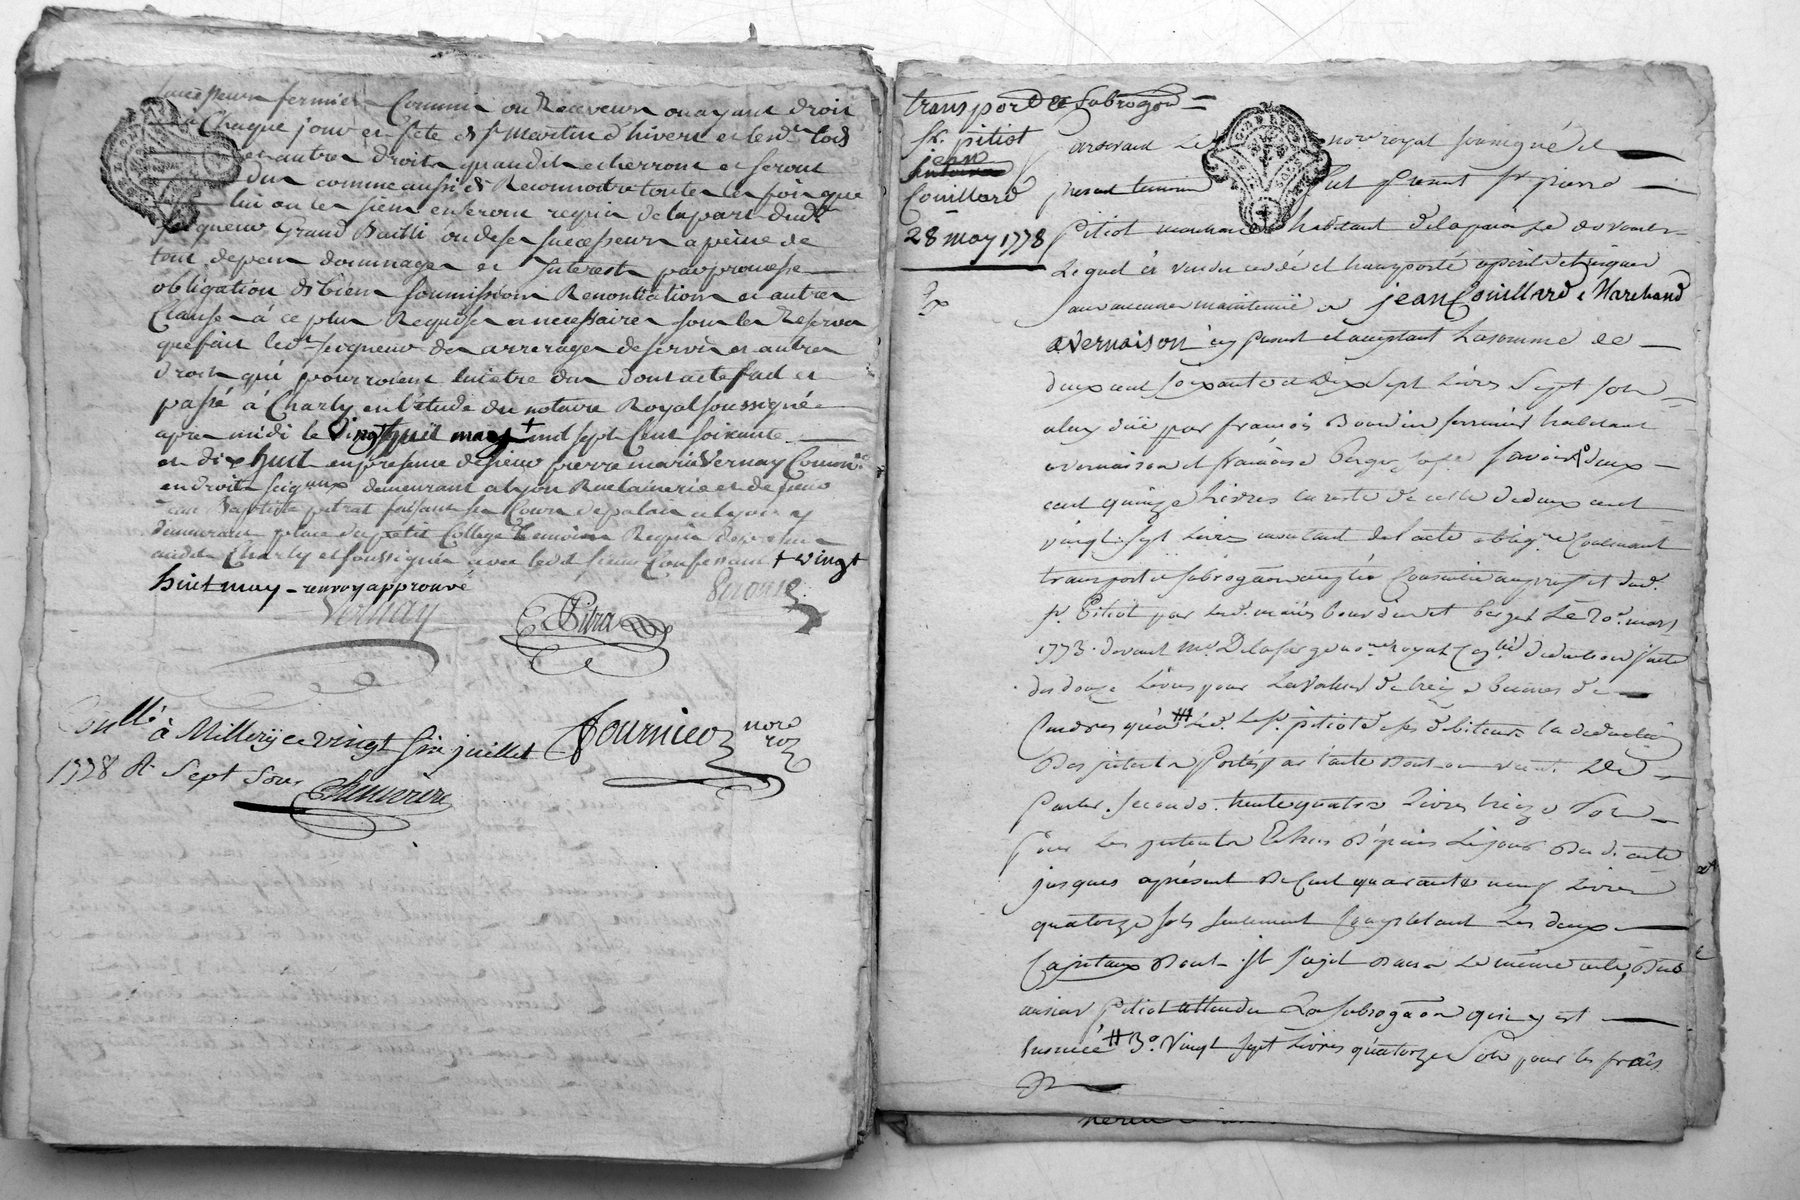 fermier Commis ou Receveurs ou ayant droit
à Chaque jour et fête de St Martin d'hiver et lesd. lods
et autres droits quand ils echerront et seront
dus comme aussi de Reconnoitre toutes les fois que
lui ou les siens en seront requis de la part dud.
Seigneur Grand Bailli ou de ses successeurs a peine de
tous depens dommages et Interests par promesse
obligation de biens soumissions Renontiations et autres
Clauses à ce plus Requises et necessaires sous les Reserves
que fait led. seigneur des arrerages de servis et autres
droits qui pourroient lui etre dus dont acte fait et
passé à Charly en l'étude du notaire Royal soussigné
apres midi le vingt huit may + mil sept Cent soixante
et dix huit en presence de sieur pierre marie Vernay
en droits seigaux demeurant a lyon Rue lainerie et de sieur
jean Baptiste pitrat faisant sa Cour de palais a lyon y
demeurant place du petit College temoins Requis
aud. Charly et soussignés avec led. sieur Confessant + vingt
huit may - renvoy approuvé
Vernay
Pitra
Con.llé à Millery ce vingt six juillet
1778 R. Sept Sous
Fournier
nore
ro
transport et subrogon
Sr. pitiot
Jean
Couillard
28 may 1778
pardevant Le nore royal soussigné et
present temoins fut present Sr pierre
Pitiot marchand habitant de la paroisse de vernes
Lequel a vendu cedé et transporté
sans aucune maintenüe a jean Couillard Marchand
a Vernaison icy present et acceptant La somme de
deux cent soixante et dix sept Livres Sept sols
a luy düe par françois Bourdin serrurier habitant
a vernaison et francoise Berger sa fe. savoir deux
cent quinze Livres en reste de celle de deux cent
vingt sept Livres montant de l'acte oblige. Contenant
transport et subrogaon
Sr Pitiot par lesd. mariés bourdin et berger Le 20e. mars
1773. devant Me. Delafarge nore royal
des douze Livres pour La valeur de treize bennes de
Cendres qu'a led. Sr. pitiot de ses debiteurs La deduction
Des interets Portés par l'acte dont on vient De
Parler. Secondo. trente quatre Livres treize Sols
Pour Les interets Echus Depuis Le jour Dud. acte
jusques apresent De Cent quarante neuf Livres
quatorze sols seulement Completant Les deux
Capitaux Dont il s'agit Dans Le même acte, Dus
ausieur Pitiot attendu La subrogaon qui y est
Enoncée # 3o. Vingt sept Livres quatorze Sols pour les frais